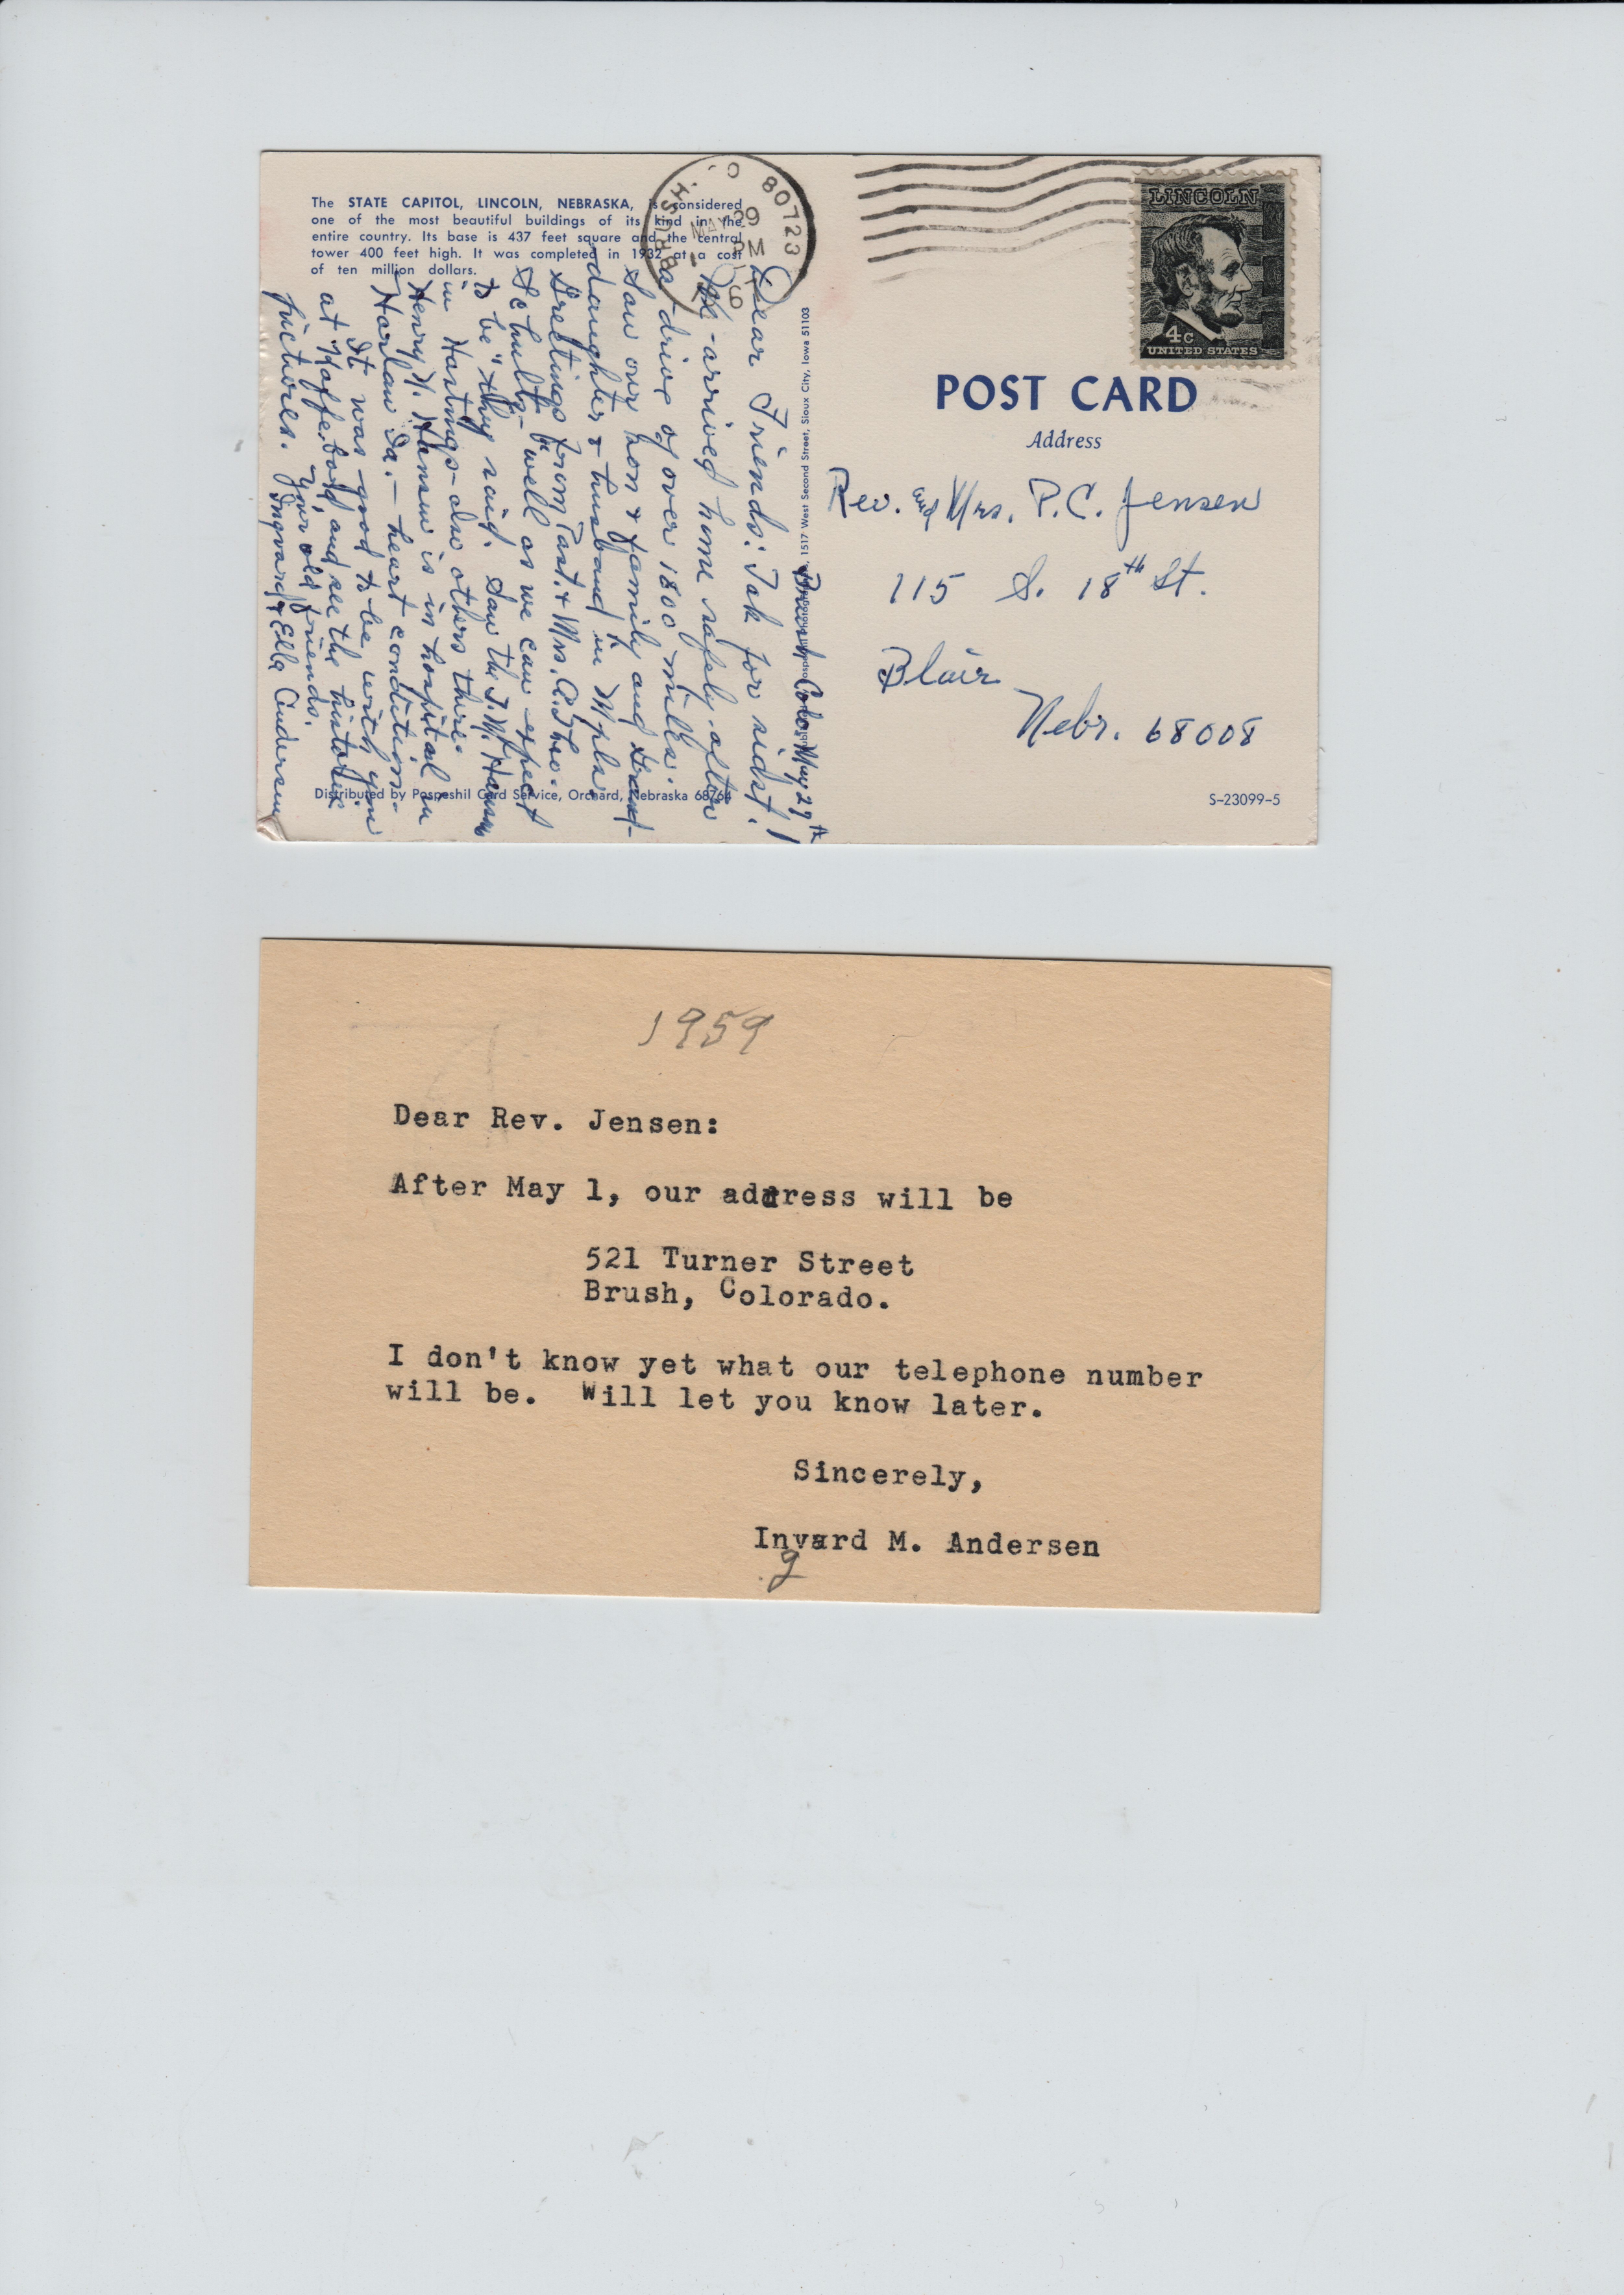 The STATE CAPITOL, LINCOLN, NEBRASKA, is considered
one of the most beautiful buildings of its kind in the
entire country. Its base is 437 feet square and the central
tower 400 feet high. It was completed in 1932 at a cost
of ten million dollars.
BRUSH. CO 80723
MAY 29
PM
LINCOLN
4c
UNITED STATES
POST CARD
Address
Rev. and Mrs. P.C. Jensen
115 S. 18th St.
Blair
Nebr. 68008
S-23099-5
1517 West Second Street, Sioux City, Iowa 51103
Brush Colo. May 29th
Dear Friends: Tak for sidst!
We arrived home safely after
a drive of over 1800 miles.
Saw our son & family and Grand-
daughter & husband in Mpls.
Greetings from Past. & Mrs. A. Theo.
Schultz - "well as we can expect
to be" they said. Saw the J.N. Hansens
in Hastings - also others there.
Henry N. Hansen is in hospital in
Harlan Ia. - heart condition.
It was good to be with you
at Kaffe-bord and see the historic
pictures. Your old friends.
Ingvard & Ella Andersen
Distributed by Pospeshil Card Service, Orchard, Nebraska 68764
1959
Dear Rev. Jensen:
After May 1, our address will be
521 Turner Street
Brush, Colorado.
I don't know yet what our telephone number
will be. Will let you know later.
Sincerely,
Invard M. Andersen
g